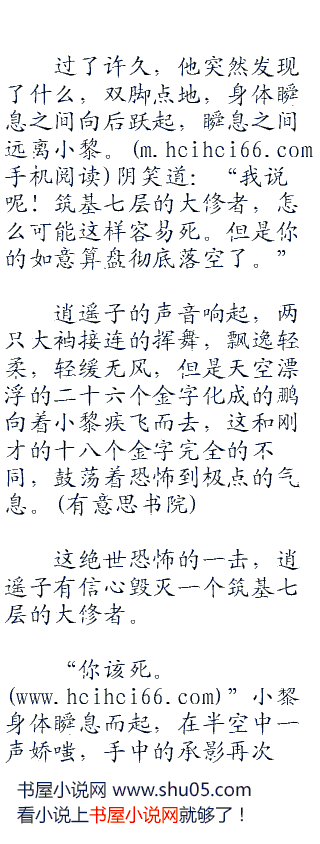 过了许久，他突然发现
了什么，双脚点地，身体瞬
息之间向后跃起，瞬息之间
远离小黎。(m.hcihci66.com
手机阅读)阴笑道：“我说
呢！筑基七层的大修者，怎
么可能这样容易死。但是你
的如意算盘彻底落空了。”
逍遥子的声音响起，两
只大袖接连的挥舞，飘逸轻
柔，轻缓无风，但是天空漂
浮的二十六个金字化成的鹏
向着小黎疾飞而去，这和刚
才的十八个金字完全的不
同，鼓荡着恐怖到极点的气
息。(有意思书院)
这绝世恐怖的一击，逍
遥子有信心毁灭一个筑基七
层的大修者。
“你该死。
(www.hcihci66.com)”小黎
身体瞬息而起，在半空中一
声娇嗤，手中的承影再次
书屋小说网 www.shu05.com
看小说上书屋小说网就够了！